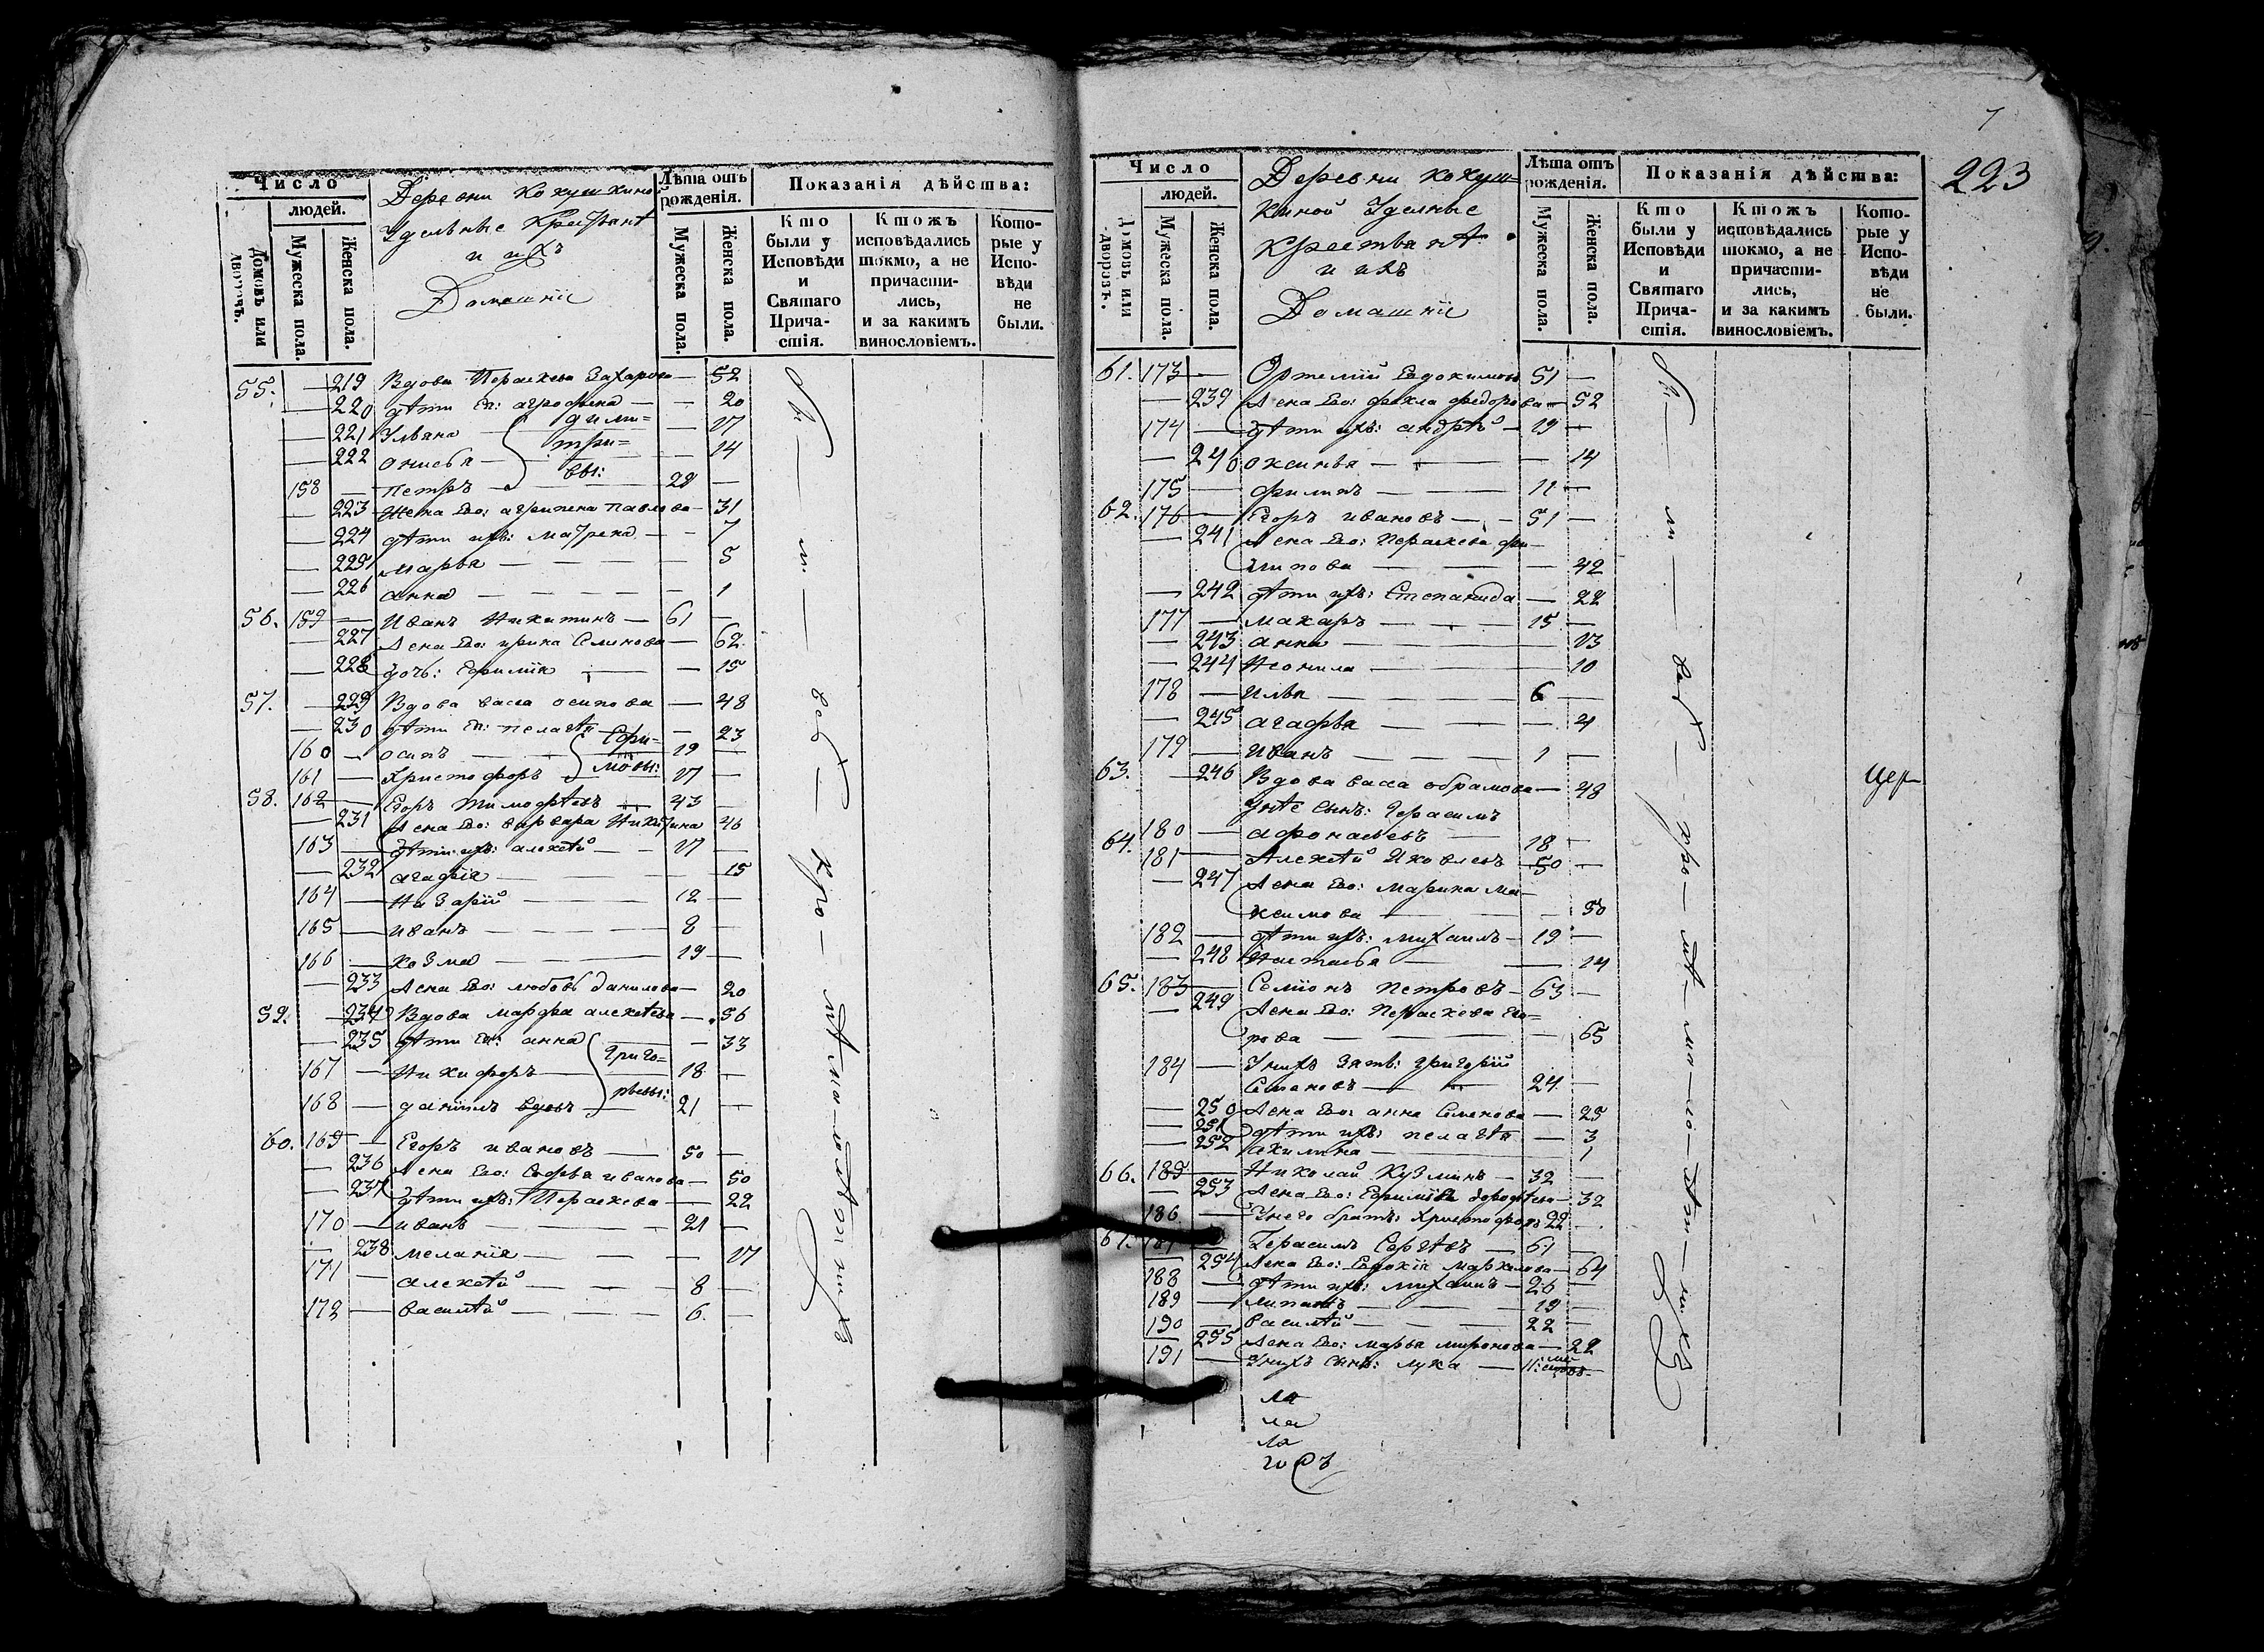 Число
людей.
Домовъ или дворовъ.
Мужеска пола.
Женска пола.
Деревни Кокушкиной
Удельные Крестьянѣ
и ихъ
Домашніе
Лѣта отъ рожденія.
Мужеска пола.
Женска пола.
Показанія дѣйства:
Кто были у Исповѣди и Святаго Причастія.
Ктожъ исповѣдались токмо, а не причастились, и за какимъ винословіемъ.
Которые у Исповѣди не были.
55. — 219 Вдова Пораскева Захарова — 52
— 220 дѣти Ея: агрофена — — 20
— 221 Ульяна — дими= — 17
— 222 анисья — трі= — 14
158 — петръ — вы: 28 —
— 223 Жена Его: агрипена павлова — 31
— 224 дѣти ихъ: матрена — — 7
— 225 марья — — — 5
— 226 анна — — — 1
56. 159 — Иванъ Никитинъ — 61 —
— 227 Жена Его: ирина Семенова — 62
— 228 дочь: Ефимія — — 15
57. — 229 Вдова васса осипова — 48
— 230 дѣти Ея: пелагѣя — 23
160 — осипъ — Ефи= 19 —
161 — Христофоръ — мовы: 17 —
58. 162 — Егоръ тимофѣевъ — 43 —
— 231 Жена Его: варвара Никитина 46
163 — дѣти ихъ: алексѣй — 17 —
— 232 агафія — — 15
164 — Назарій — 12 —
165 — иванъ — 8 —
166 — козма — 19 —
— 233 Жена Его: любовь данилова — 20
59. — 234 Вдова марфа алексѣева — 56
— 235 дѣти Ея: анна — 33
167 — Никифоръ — Григо= 18 —
168 — даніилъ вдовъ — рьевы: 21 —
60. 169 — Егоръ ивановъ — 50 —
— 236 Жена Его: Софья иванова — 50
— 237 дѣти ихъ: Пораскева — 22
170 — иванъ — 21 —
— 238 меланія — — 17
171 — алексѣй — 8 —
172 — василѣй — 6. —
7
223
Число
людей.
Домовъ или дворовъ.
Мужеска пола.
Женска пола.
Деревни Кокуш=
киной Уделные
Крестьянѣ
и ихъ
Домашніе
Лѣта отъ рожденія.
Мужеска пола.
Женска пола.
Показанія дѣйства:
Кто были у Исповѣди и Святаго Причастія.
Ктожъ исповѣдались токмо, а не причастились, и за какимъ винословіемъ.
Которые у Исповѣди не были.
61. 173 — Ортемій Евдокимовъ 51 —
— 239 Жена Его: фекла федорова — 52
174 — дѣти ихъ: андрѣй — 19 —
— 240 оксинья — — 14
175 — филипъ — 11 —
62. 176 — Егоръ ивановъ — 51 —
— 241 Жена Его: Пераскева фи=
липова — — 42
— 242 дѣти ихъ: Степанида — 22
177 — макаръ — 15 —
— 243 анна — 13
— 244 Неонила — 10
178 — Илья — 6 —
— 245 агафья — — 4
179 — Иванъ — 1 —
63. — 246 Вдова васса обрамова — 48
унее сынъ: Герасимъ
180 — афонасьевъ — 18 —
64. 181 — Алексѣй Яковлевъ 50 —
— 247 Жена Его: Марина Ма=
ксимова — — 50
182 — дѣти ихъ: михаилъ — 19 —
— 248 Настасья — — 14
65. 183 — Семіонъ Петровъ — 63 —
— 249 Жена Его: Пераскева Его=
рова — — 65
184 — Унихъ зять: григорій
Семеновъ — 24 —
— 250 Жена Его: анна Семенова — 25
— 251 дѣти ихъ: пелагѣя — 3
— 252 акилина — 1
66. 185 — Николай Кузминъ — 32 —
— 253 Жена Его: Ефимія дорофѣева — 32
186 — Унего братъ: Христофоръ 22 —
67. 187 — Герасимъ Сергѣевъ — 61 —
— 254 Жена Его: Евдокія Маркелова — 64
188 — дѣти ихъ: михаилъ — 26 —
189 — — 19 —
190 — василѣй — 22 —
— 255 Жена Его: марья миронова — 22
191 — Унихъ сынъ: лука — 11: мѣ=
сяцовъ —